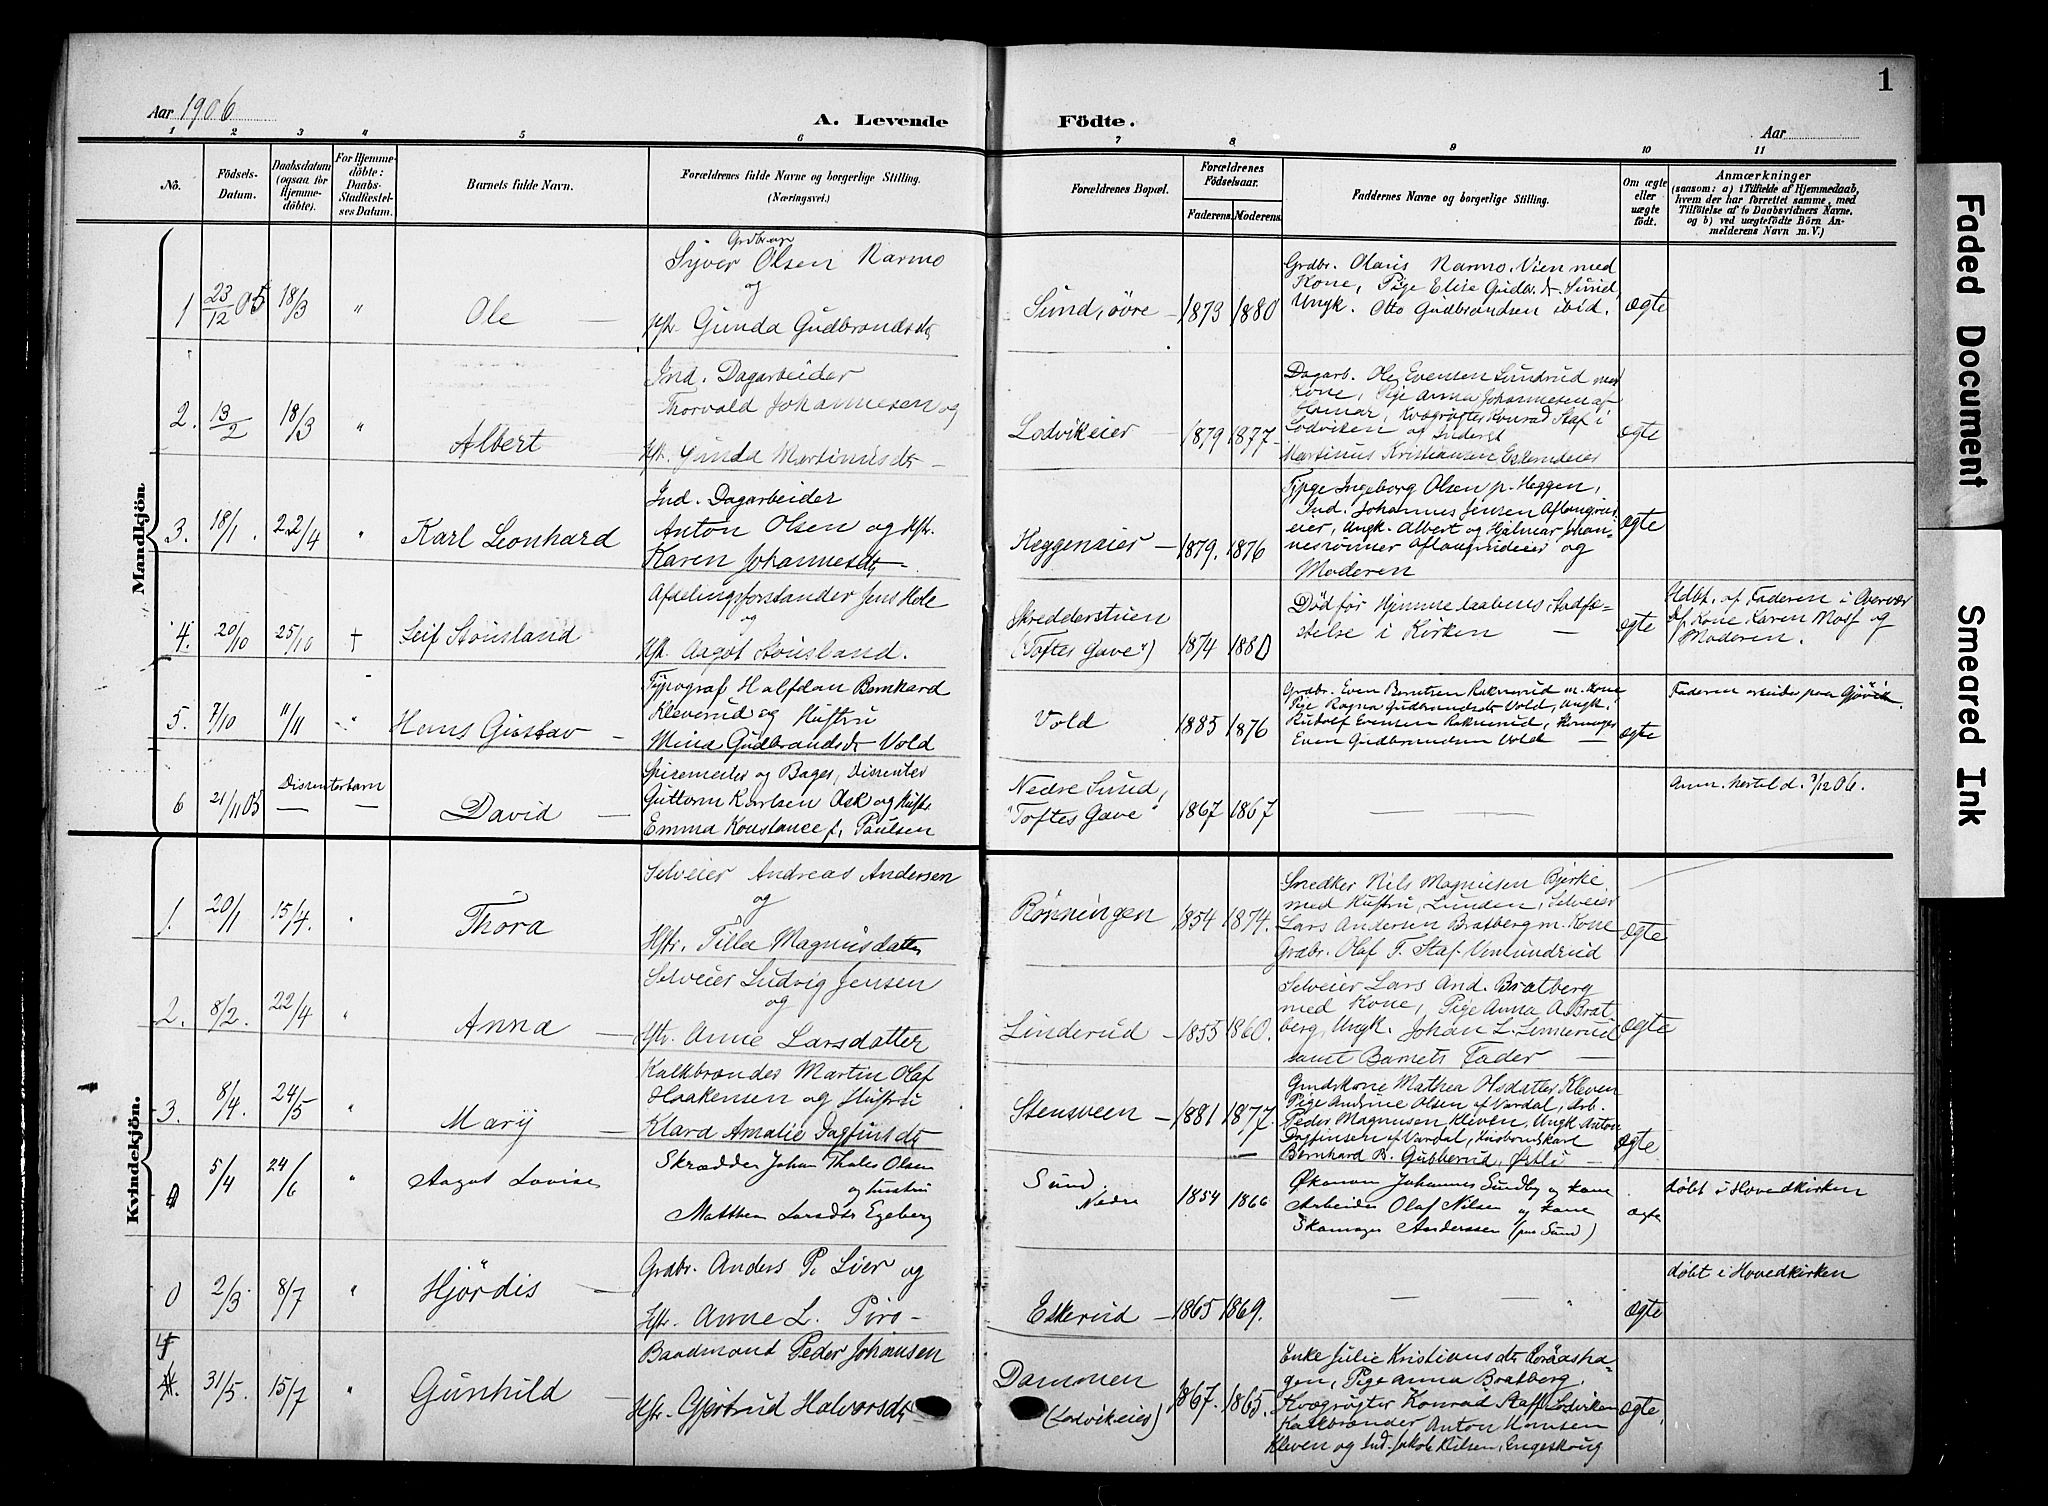 1
Aar 1906
A. Levende Födte.
Aar
1 2 3 4 5 6 7 8 9 10 11
No.
Födsels-
Datum.
Daabsdatum
(ogsaa for
Hjemme-
döbte).
For Hjemme-
döbte:
Daabs-
Stadfæstel-
ses Datum.
Barnets fulde Navn.
Forældrenes fulde Navne og borgerlige Stilling.
(Næringsvei.)
Forældrenes Bopæl.
Forældrenes
Födselsaar.
Faderens. Moderens.
Faddernes Navne og borgerlige Stilling.
Om ægte
eller
uægte
födt.
Anmærkninger
(saasom: a) i Tilfælde af Hjemmedaab,
hvem der har forrettet samme, med
Tilföielse af to Daabsvidners Navne,
og b) ved uægtefödte Börn An-
melderens Navn m. V.)
Mandkjön.
1 23/12 05 18/3 " Ole —
Grdbrug
Syver Olsen Narmo
og
Hstr. Gunda Gudbrandsdt
Sund, øvre — 1873 1880
Grdbr. Olaus Narmo, Vien med
Kone, Pige Elise Gudbr.dt Sund,
Ungk. Otto Gudbrandsen ibid.
Ægte
2. 13/2 18/3 " Albert
Ind. Dagarbeider
Thorvald Johannesen og
Hst. Gunda Martinusdt —
Lodvikeier — 1879 1877 —
Dagarb. Ole Evensen Sundrud med
Kone, Pige Anna Johannesen af
Hamar, Kvægrøgter Konrad Staf i
Lodviken og Inderst
Martinus Kristiansen
ægte
3. 18/1. 22/4 " Karl Leonhard
Ind. Dagarbeider
Anton Olsen og Hstr.
Karen Johannesdt —
Heggeneier — 1879. 1876
Pige Ingeborg Olsen p. Heggen,
Ind. Johannes Jensen
eier, Ungk. Albert og Hjalmar Johan-
og
Moderen
Ægte
4. 20/10 25/10 + Leif Stousland
Afdelingsforstander Jens Hole
og
Hst. Aagot Stousland.
Skredderstuen
("Toftes Gave") 1874 1880
Død før Hjemmedaabens Stadfæ-
stelse i Kirken —
ægte
Hdbt. af Faderen i Overvær
af Kone Karen Moe og
Moderen.
5. 7/10 11/11 " Hans Gustav —
Typograf Halfdan Bernhard
Kleverud og Hustru
Mina Gudbrandsdt Vold
Vold 1885 1876
Grdbr. Even Berntsen Raknerud m. Kone
Pige Ragna Gudbrandsdt Vold, Ungk.
Rudolf Evensen Raknerud,
Even Gudbrandsen Vold —
ægte
Faderen arbeider paa Gjøvik.
6 21/11 05 Dissenterbarn — — David —
Spisemester og Bager, Dissenter
Guttorm Karlsen Ask og Hustr.
Emma Konstance f. Paulsen
Nedre Sund,
"Toftes Gave" 1867 1867
— —
Anm. hertil d. 7/12 06.
Kvindekjön.
1. 20/1 15/4. " Thora
Selveier Andreas Andersen
og
Hstr. Tilla Magnusdatter
Rønningen 1854 1874.
Snedker Nils Magnusen Bjerke
med Hustru, Lunden, Selveier
Lars Andersen Bratberg m. Kone
Grdbr. Olaf T. Staf
Ægte
2. 8/2. 22/4 " Anna —
Selveier Ludvig Jensen
og
Hstr. Anne Larsdatter
Linderud — 1853 1860.
Selveier Lars And. Bratberg
med Kone, Pige Anna A. Brat-
berg, Ungk. Johan L. Linnerud
samt Barnets Fader —
Ægte
3. 8/4. 24/5 " Mary —
Kalkbrænder Martin Olaf
Haakensen og Hustru
Klara Amalie Dagfinsdt
Stensveen — 1881 1877.
Grdskone Mathea Olsdatter Kleven
Pige Andrine Olsen af Vardal, Arb.
Peder Magnusen Kleven, Ungk Anton
Dagfinsen af Vardal,
Bernhard B. Gubberud, Østli —
Ægte
0 5/4 24/6 " Aagot Lovise
Skrædder Johan Thales Olsen
og hustru
Mathea Larsdtr Egeberg
Sund,
Nedre 1854 1866
Økonom Johannes Sundby og kone
Arbeider Olaf Nilsen og kone
Skomager Anderssen (paa Sund)
ægte
døbt i Hovedkirken
0 2/3 8/7 " Hjørdis —
Grdbr. Anders P. Lier og
Hstr. Anne L. Pers —
Eskerud — 1865 1869.
— — "
Ægte
døbt i Hovedkirken
4. 31/5. 15/7 " Gunhild —
Baadmand Peder Johansen
Hstr. Gjertrud Halvorsdt
Dammen
(Lodvikeier) 1867. 1865.
Enke Julie Kristiansdt
gen, Pige Anna Bratberg.
Kvægrøgter Konrad Staf Lodviken
Kalkbrænder Anton Hansen
Kleven og Ind. Jakob Nilsen, Engeskoug
Ægte.
Faded Document
Smeared Ink